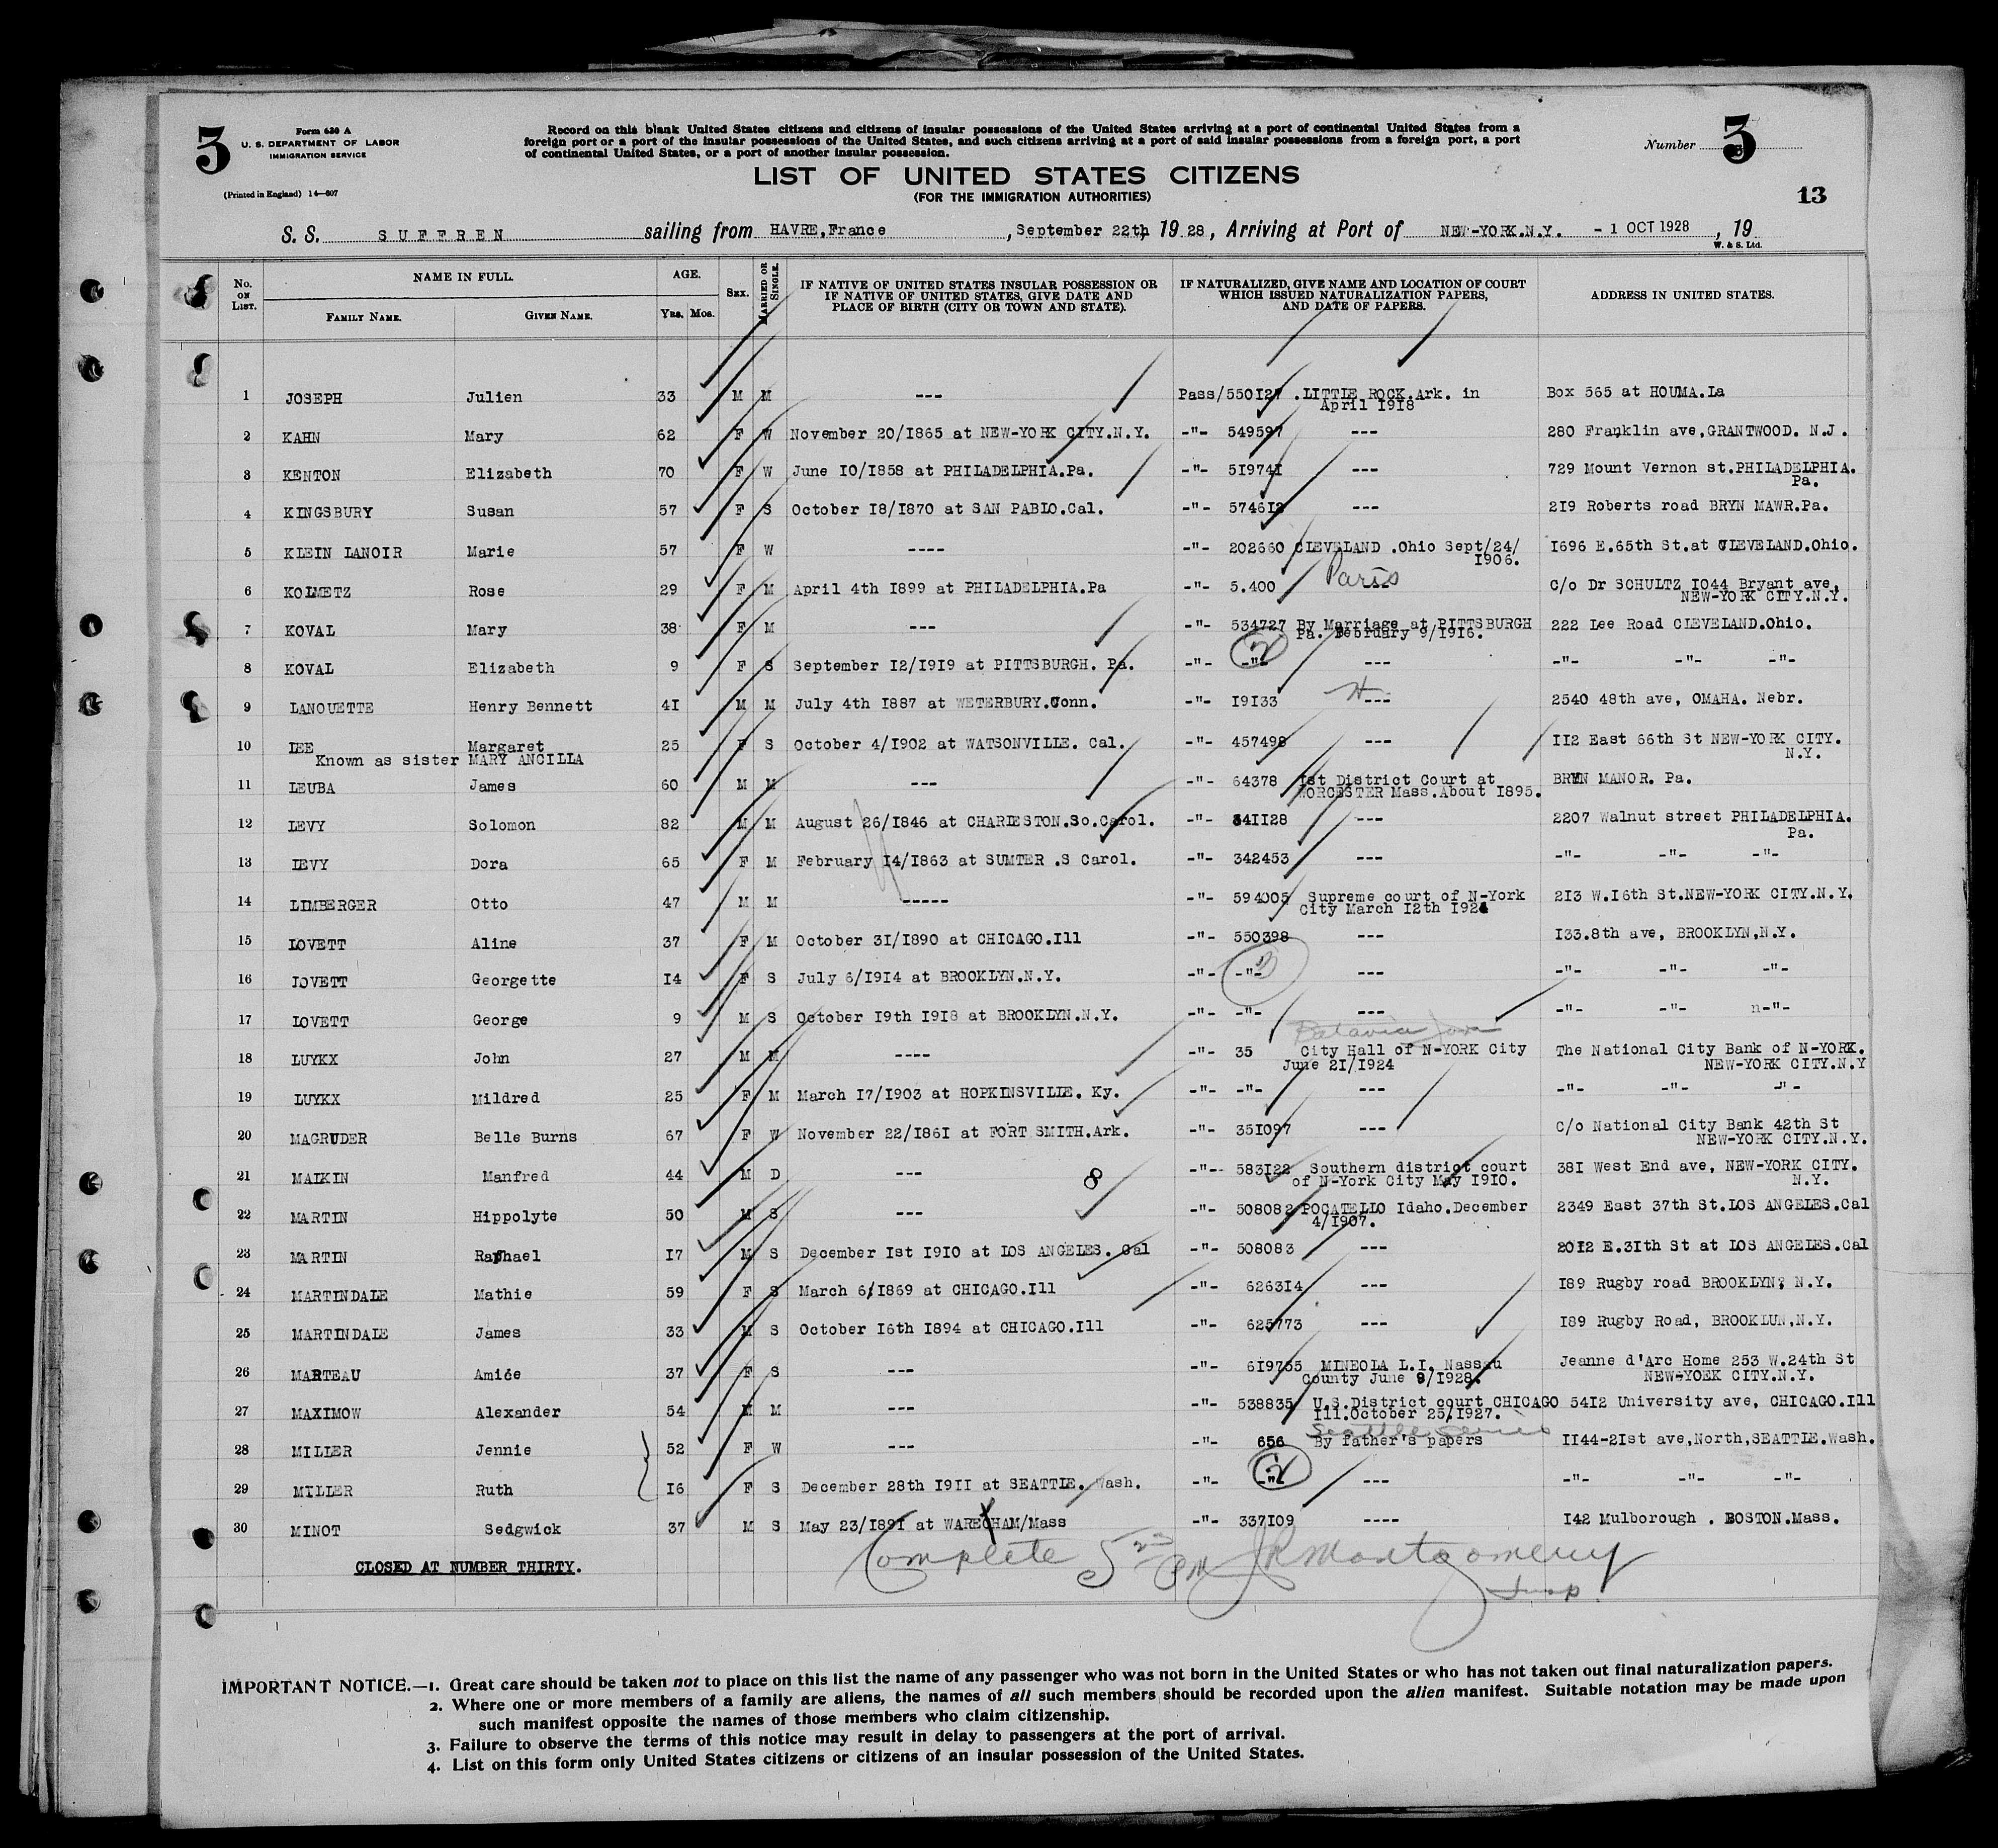 3
Form 630 A
U. S. DEPARTMENT OF LABOR
IMMIGRATION SERVICE
(Printed in England) 14—607
Record on this blank United States citizens and citizens of insular possessions of the United States arriving at a port of continental United States from a
foreign port or a port of the insular possessions of the United States, and such citizens arriving at a port of said insular possessions from a foreign port, a port
of continental United States, or a port of another insular possession.
Number 3
LIST OF UNITED STATES CITIZENS
(FOR THE IMMIGRATION AUTHORITIES)
13
S. S. SUFFREN sailing from HAVRE, France , September 22th, 1928, Arriving at Port of NEW-YORK.N.Y. - 1 OCT 1928 , 19
W. & S. Ltd.
No. ON LIST. NAME IN FULL. AGE. SEX. MARRIED OR SINGLE. IF NATIVE OF UNITED STATES INSULAR POSSESSION OR IF NATIVE OF UNITED STATES, GIVE DATE AND PLACE OF BIRTH (CITY OR TOWN AND STATE). IF NATURALIZED, GIVE NAME AND LOCATION OF COURT WHICH ISSUED NATURALIZATION PAPERS, AND DATE OF PAPERS. ADDRESS IN UNITED STATES.
FAMILY NAME. GIVEN NAME. Yrs. Mos.
1 JOSEPH Julien 33 M M --- Pass/550127 .LITTLE ROCK.Ark. in Box 565 at HOUMA.La
April 1918
2 KAHN Mary 62 F W November 20/1865 at NEW-YORK CITY.N.Y. -"- 549597 --- 280 Franklin ave,GRANTWOOD. N.J.
3 KENTON Elizabeth 70 F W June 10/1858 at PHILADELPHIA.Pa. -"- 519741 --- 729 Mount Vernon st.PHILADELPHIA.
Pa.
4 KINGSBURY Susan 57 F S October 18/1870 at SAN PABLO.Cal. -"- 574612 --- 219 Roberts road BRYN MAWR.Pa.
5 KLEIN LANOIR Marie 57 F W ---- -"- 202660 CLEVELAND .Ohio Sept/24/ 1696 E.65th St.at CLEVELAND.Ohio.
1906.
Paris
6 KOLMETZ Rose 29 F M April 4th 1899 at PHILADELPHIA.Pa -"- 5.400 C/o Dr SCHULTZ 1044 Bryant ave,
NEW-YORK CITY.N.Y.
7 KOVAL Mary 38 F M --- -"- 534727 By Marriage at PITTSBURGH 222 Lee Road CLEVELAND.Ohio.
Pa. February 9/1916.
8 KOVAL Elizabeth 9 F S September 12/1919 at PITTSBURGH. Pa. -"- -"- 2 --- -"- -"- -"-
9 LANOUETTE Henry Bennett 41 M M July 4th 1887 at WETERBURY.Conn. -"- 19133 --- 2540 48th ave, OMAHA. Nebr.
10 LEE Margaret 25 F S October 4/1902 at WATSONVILLE. Cal. -"- 457498 --- 112 East 66th St NEW-YORK CITY.
Known as sister MARY ANCILLA N.Y.
11 LEUBA James 60 M M --- -"- 64378 1st District Court at BRYN MANOR. Pa.
WORCESTER Mass.About 1895.
12 LEVY Solomon 82 M M August 26/1846 at CHARLESTON.So.Carol. -"- 341128 --- 2207 Walnut street PHILADELPHIA.
Pa.
13 LEVY Dora 65 F M February 14/1863 at SUMTER .S Carol. -"- 342453 --- -"- -"- -"-
14 LIMBERGER Otto 47 M M ----- -"- 594005 Supreme court of N-York 213 W.16th St.NEW-YORK CITY.N.Y.
City March 12th 1924
15 LOVETT Aline 37 F M October 31/1890 at CHICAGO.Ill -"- 550398 --- 133.8th ave, BROOKLYN,N.Y.
16 LOVETT Georgette 14 F S July 6/1914 at BROOKLYN.N.Y. -"- -"- 3 --- -"- -"- -"-
17 LOVETT George 9 M S October 19th 1918 at BROOKLYN.N.Y. -"- -"- --- -"- -"- n-"-
Batavia Java
18 LUYKX John 27 M M ---- -"- 35 City Hall of N-YORK City The National City Bank of N-YORK.
June 21/1924 NEW-YORK CITY.N.Y
19 LUYKX Mildred 25 F M March 17/1903 at HOPKINSVILLE. Ky. -"- -"- --- -"- -"- -"-
20 MAGRUDER Belle Burns 67 F W November 22/1861 at FORT SMITH.Ark. -"- 351097 --- C/o National City Bank 42th St
NEW-YORK CITY.N.Y.
21 MALKIN Manfred 44 M D --- 8 -"-- 583122 Southern district court 381 West End ave, NEW-YORK CITY.
of N-York City May 1910. N.Y.
22 MARTIN Hippolyte 50 M S --- -"- 508082 POCATELLO Idaho.December 2349 East 37th St.LOS ANGELES.Cal
4/1907.
23 MARTIN Raphael 17 M S December 1st 1910 at LOS ANGELES. Cal -"- 508083 --- 2012 E.31th St at LOS ANGELES.Cal
24 MARTINDALE Mathie 59 F S March 6/1869 at CHICAGO.Ill -"- 626314 --- 189 Rugby road BROOKLYN, N.Y.
25 MARTINDALE James 33 M S October 16th 1894 at CHICAGO.Ill -"- 625773 --- 189 Rugby Road, BROOKLUN,N.Y.
26 MARTEAU Amiée 37 F S --- -"- 619765 MINEOLA L.I. Nassau Jeanne d'Arc Home 253 W.24th St
County June 8/1928. NEW-YOEK CITY.N.Y.
27 MAXIMOW Alexander 54 M M --- -"- 538835 U.S.District court CHICAGO 5412 University ave, CHICAGO.Ill
Ill.October 25/1927.
Seattle
28 MILLER Jennie 52 F W --- -"- 656 By father's papers 1144-21st ave,North,SEATTLE.Wash.
29 MILLER Ruth 16 F S December 28th 1911 at SEATTLE. Wash. -"- -"- 2 --- -"- -"- -"-
30 MINOT Sedgwick 37 M S May 23/1891 at WAREGHAM/Mass -"- 337109 ---- 142 Mulborough . BOSTON.Mass.
CLOSED AT NUMBER THIRTY. Complete 5 PM JR Montgomery
Insp.
IMPORTANT NOTICE.—1. Great care should be taken not to place on this list the name of any passenger who was not born in the United States or who has not taken out final naturalization papers.
2. Where one or more members of a family are aliens, the names of all such members should be recorded upon the alien manifest. Suitable notation may be made upon
such manifest opposite the names of those members who claim citizenship.
3. Failure to observe the terms of this notice may result in delay to passengers at the port of arrival.
4. List on this form only United States citizens or citizens of an insular possession of the United States.